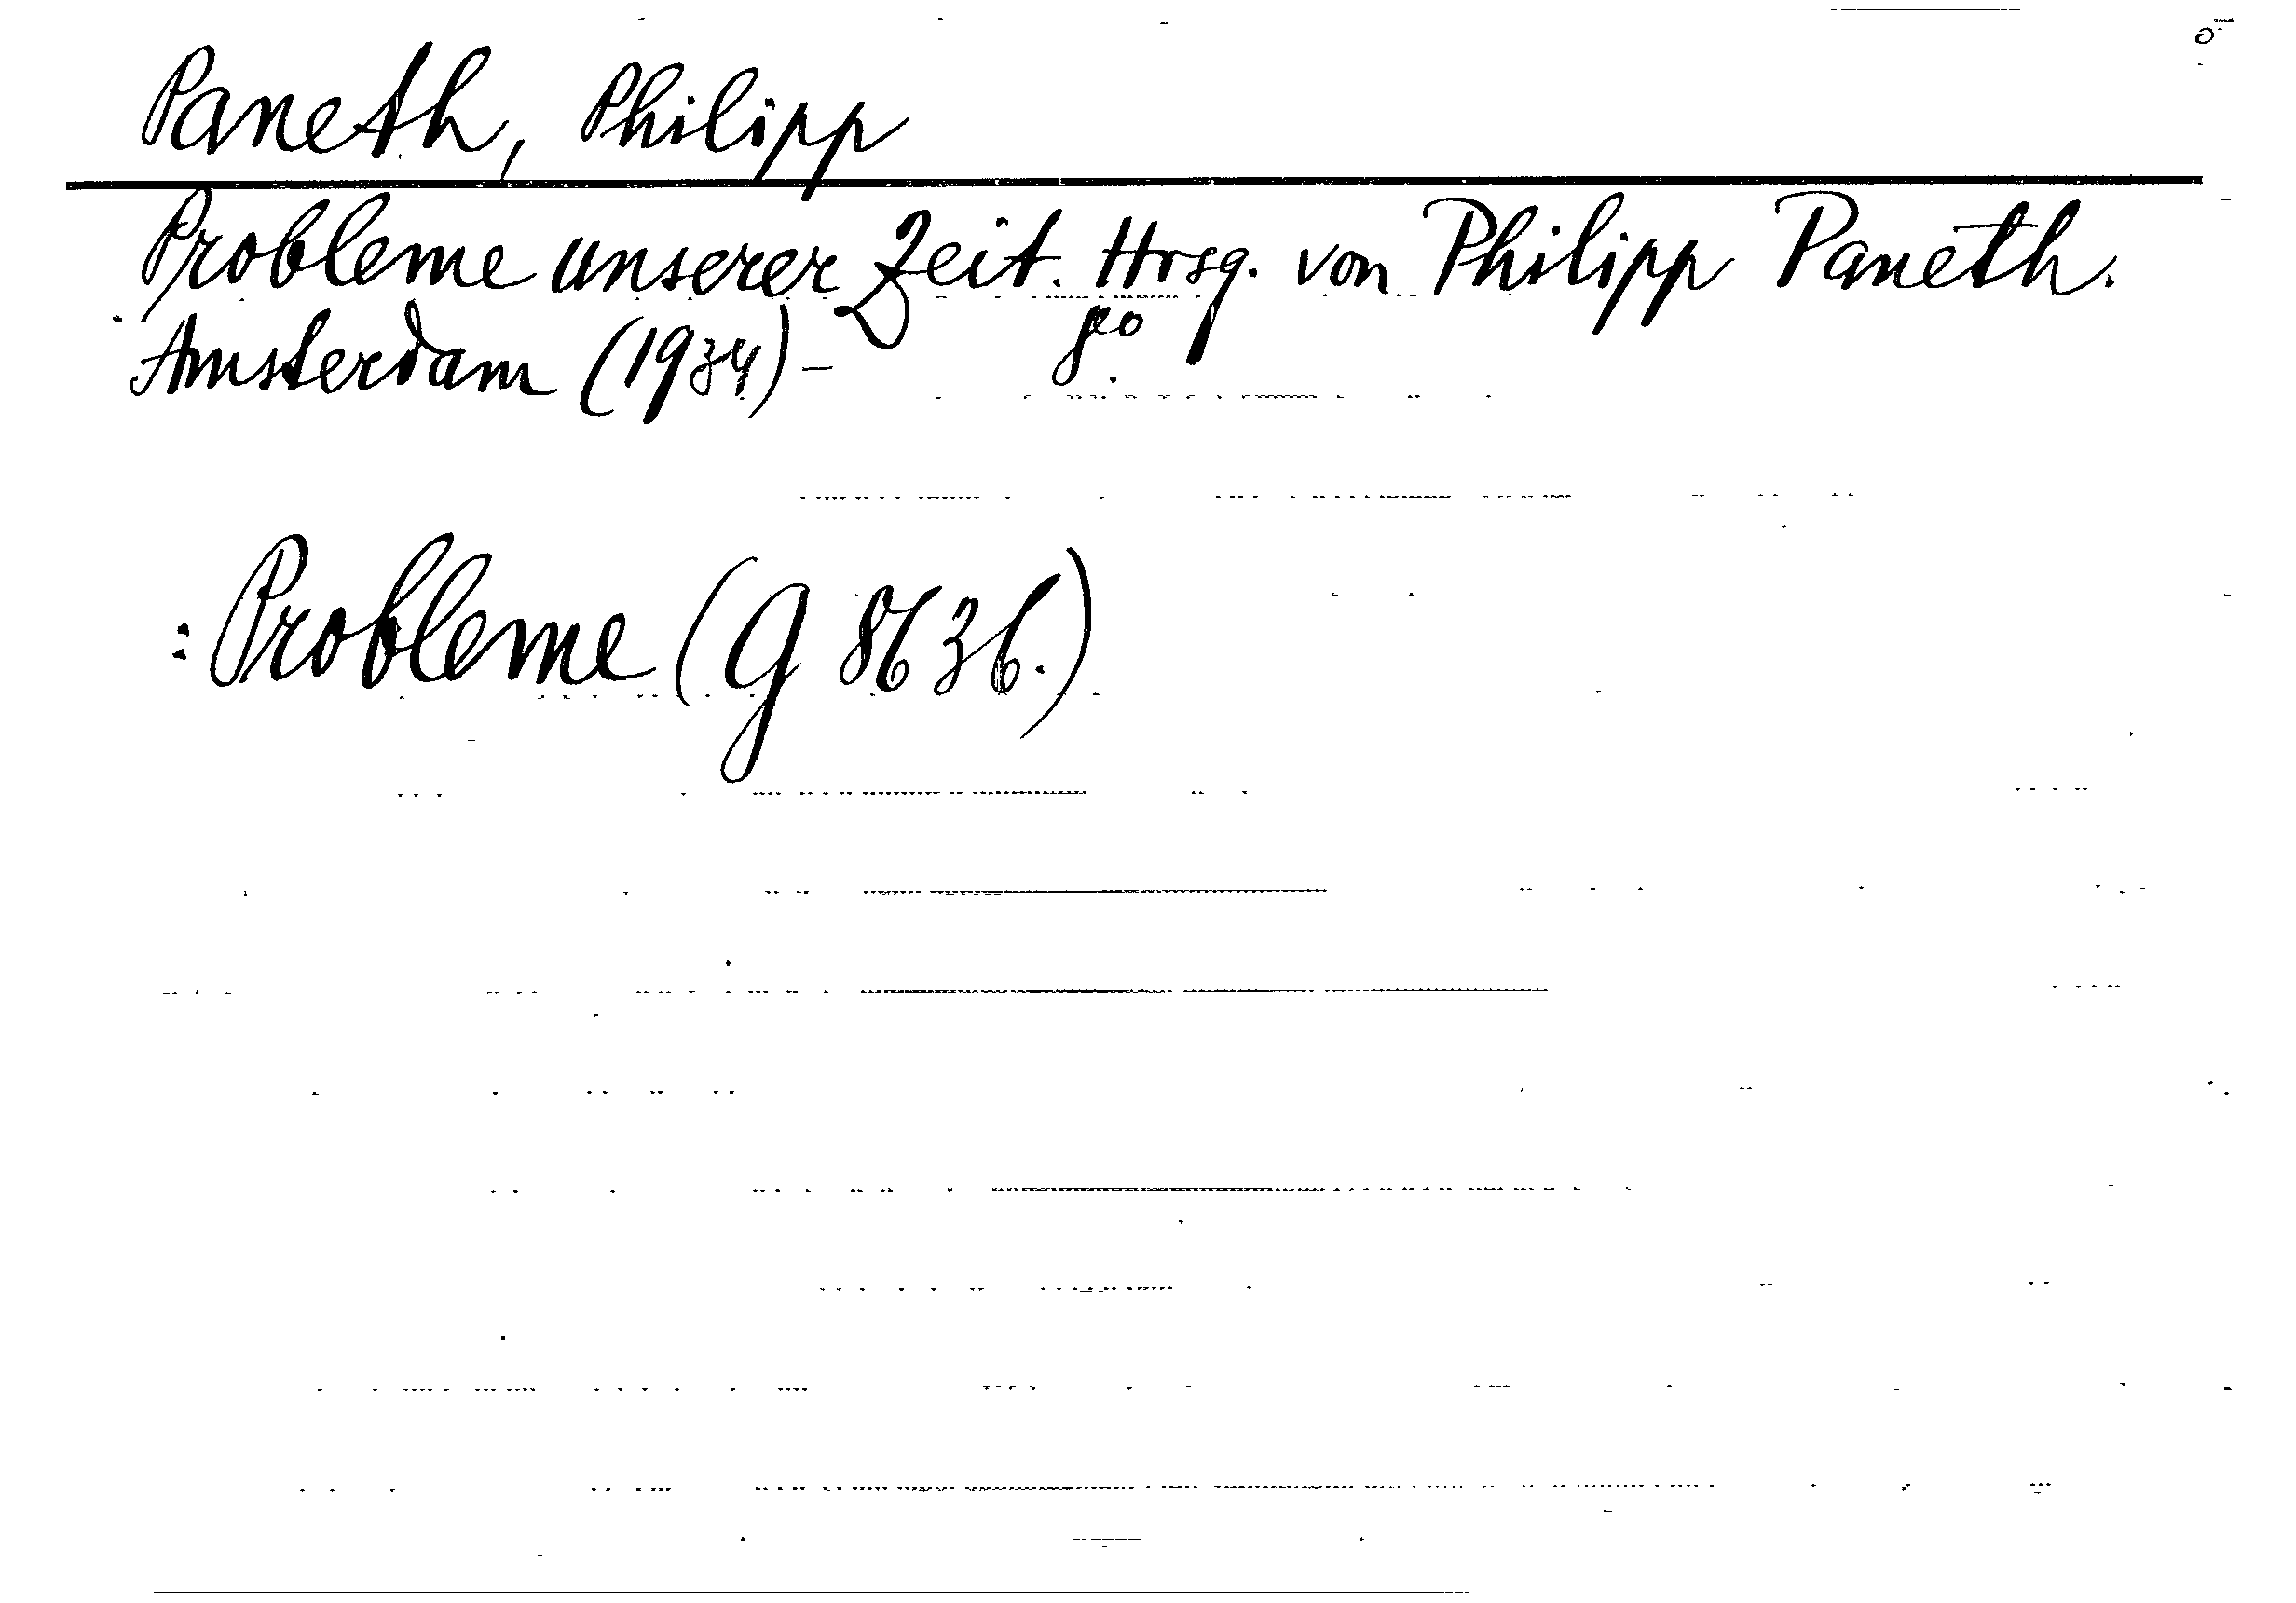 Paneth, Philipp
Probleme unserer Zeit. Hrsg. von Philipp Paneth.
Amsterdam (1934)- 80
: Probleme (G 8636.)